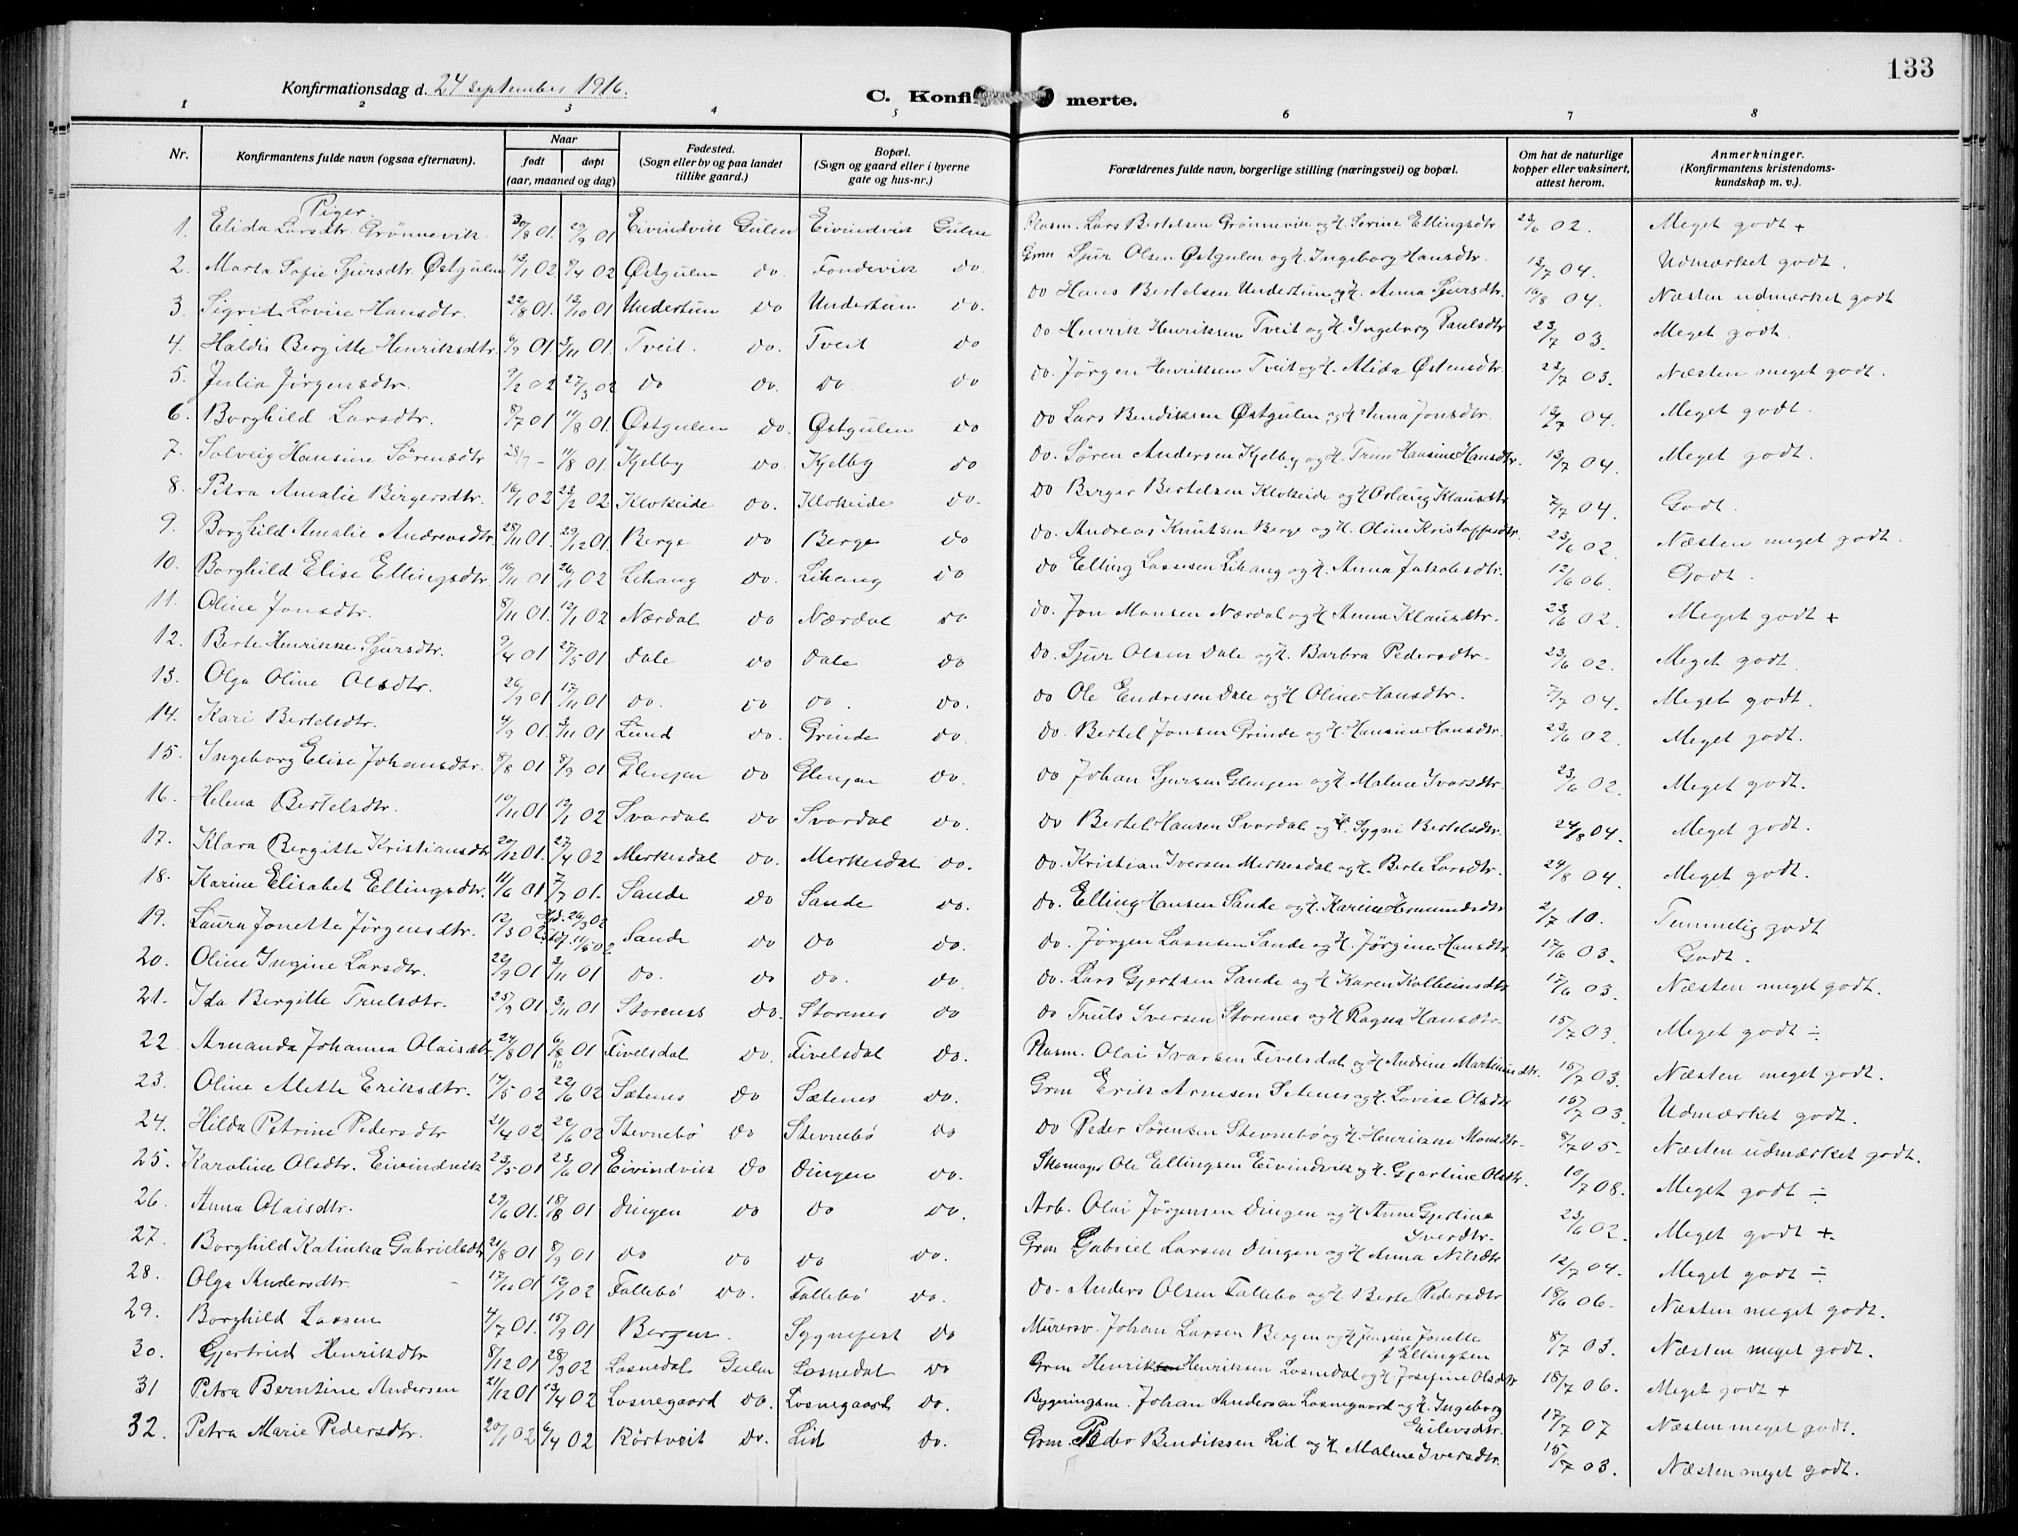 133
Konfirmationsdag d. 24 september 1916.
C. Konfirmerte.
1 2 3 4 5 6 7 8
Nr. Konfirmantens fulde navn (ogsaa efternavn). Naar født døpt (aar, maaned og dag) Fødested. (Sogn eller by og paa landet tillike gaard.) Bopæl. (Sogn og gaard eller i byerne gate og hus-nr.) Forældrenes fulde navn, borgerlige stilling (næringsvei) og bopæl. Om hat de naturlige kopper eller vaksinert, attest herom. Anmerkninger. (Konfirmantens kristendomskundskap m. v.).
Piger.
1. Elida Larsdtr. Grønnevik 30/8 01. 29/9 01 Eivindvik Gulen Eivindvik Gulen Plasm. Lars Bertelsen Grønnevik og H. Serine Ellingsdtr. 23/6 02. Meget godt +
2. Marta Sofie Sjursdtr. Østgulen 13/1 02 9/4 02 Østgulen do. Fondevik do. Grm Sjur Olsen Østgulen og H. Ingeborg Hansdtr. 13/7 04. Udmærket godt.
3. Sigrid Lovise Hansdtr. 22/8 01. 13/10 01 Undertun do Undertun do. do Hans Bertelsen Undertun og H. Anna Sjursdtr. 16/8 04. Næsten udmærket godt
4. Haldis Bergitte Henriksdtr. 6/9 01. 3/11 01. Tveit. do. Tveit do do Henrik Henriksen Tveit og H. Ingeborg Paulsdtr 23/7 03. Meget godt.
5. Julia Jørgensdtr. 9/2 02 27/3 02 do do. do. do do. Jørgen Henriksen Tveit og H. Alida Østensdtr. 23/7 03. Næsten meget godt.
6. Borghild Larsdtr. 8/7 01 11/8 01. Østgulen do. Østgulen do do Lars Bendiksen Østgulen og H. Anna Jonsdtr. 13/7 04. Meget godt.
7. Solveig Hansine Sørensdtr 28/7 - 11/8 01. Kjelby do. Kjelby do do. Søren Andersen Kjelby og H. Trine Hansine Hansdtr. 13/7 04. Meget godt.
8. Petra Amalie Birgersdtr. 16/1 02 23/2 02 Klokeide do. Klokeide do. do Berger Bertelsen Klokeide og H. Oslaug Klausdtr 7/7 04. Godt.
9. Borghild Amalie Andreasdtr. 28/11 01. 29/12 01. Berge do Berge do do. Andreas Knutsen Berge og H. Oline Kristoffersdtr 23/6 02. Næsten meget godt.
10. Borghild Elise Ellingsdtr. 16/11 01 26/1 02 Lihaug do. Lihaug do do Elling Lassesen Lihaug og H. Anna Jakobsdtr. 12/6 06. Godt.
11. Oline Jonsdtr. 8/11 01. 12/1 02 Nærdal do Nærdal do do. Jon Monsen Nærdal og H. Anna Klausdtr. 23/6 02. Meget godt +
12. Berte Henrikke Sjursdtr. 9/4 01 27/5 01 Dale do Dale do do. Sjur Olsen Dale og H. Barbra Pedersdtr. 23/6 02. Meget godt.
13. Olga Oline Olsdtr. 26/9 01 17/11 01 do. do do. do. do Ole Endresen Dale og H. Oline Hansdtr. 7/7 04. Meget godt.
14. Kari Bertelsdtr. 4/9 01 3/11 01 Lund do. Grinde do. do. Bertel Jonsen Grinde og H. Hansine Hansdtr. 23/6 02. Meget godt.
15. Ingeborg Elise Johansdtr. 8/8 01 8/9 01 Glenjen do Glenjen do. do Johan Sjursen Glenjen og H. Malene Ivarsdtr. 23/6 02. Meget godt.
16. Helena Bertelsdtr. 10/11 01 12/1 02 Svardal do Svardal do. do Bertel Hansen Svardal og H. Sygni Bertelsdtr. 24/8 04. Meget godt.
17. Klara Bergitte Kristiansdtr 20/12 01. 27/4 02 Merkesdal do. Merkesdal do. do. Kristian Iversen Merkesdal og H. Berte Larsdtr. 24/8 04. Meget godt.
18. Karine Elisabet Ellingsdtr. 11/6 01 7/7 01. Sande do Sande do. do. Elling Hansen Sande og H. Karine Hermundsdtr 2/7 10. Temmelig godt
19. Laura Jonette Jørgensdtr. 12/3 02 Hd. 26/3 02 Stdf. 11/5 02 Sande do do do. do. Jørgen Lassesen Sande og H. Jørgine Hansdtr 17/6 03. Godt.
20. Oline Ingine Larsdtr. 22/9 01 3/11 01 do. do do. do. do. Lars Gjertsen Sande og H Karen Kolbeinsdtr 17/6 03. Næsten meget godt.
21. Ida Bergitte Trulsdtr. 25/9 01 3/11 01 Storenes do. Storenes do do Truls Iversen Storenes og H Ragna Hansdtr. 15/7 03. Meget godt ÷
22 Amanda Johanna Olaisdtr 24/8 01 6/10 01 Fivelsdal do. Fivelsdal do. Plasm. Olai Ivarsen Fivelsdal og H Andrine Martinusdtr. 15/7 03. Næsten meget godt.
23. Oline Alette Eriksdtr. 17/5 02 22/6 02 Sætenes do Sætenes do. Grm Erik Arnesen Setenes og H. Lovise Olsdtr 15/7 03. Udmærket godt.
24. Hilda Petrine Pedersdtr 21/4 02 22/6 02 Stevnebø do Stevnebø do do Peder Sørensen Stevnebø og H. Henrikke Monsdtr. 8/7 05. Næsten udmærket godt.
25. Karoline Olsdtr. Eivindvik 23/5 01 23/6 01 Eivindvik do Dingen do. Skomager Ole Ellingsen Eivindvik og H. Gjertine Olsdtr. 10/7 08. Meget godt ÷
26. Anna Olaisdtr. 29/6 01. 18/8 01 Dingen do do do. Arb. Olai Jørgensen Dingen og H Anne Gjertine Iversdtr. 23/6 02. Meget godt +
27. Borghild Katinka Gabrielsdtr 21/8 01 8/9 01 do do do do. Grm Gabriel Larsen Dingen og H Anna Nilsdtr 12/7 04. Meget godt ÷
28. Olga Andersdtr. 17/11 01 12/1 02 Fallebø do. Fallebø do. do. Anders Olsen Fallebø og H Berte Pedersdtr 18/6 06. Næsten meget godt.
29. Borghild Larsen 4/7 01. 15/9 01 Bergen. Sygnefest do Murersv. Johan Larsen Bergen og H Jensine Jonette f. Ellingsen 8/7 03. Næsten meget godt.
30. Gjertrud Henriksdtr 8/12 01 28/3 02 Losnedal Gulen Losnedal do Grm Henrik Henriksen Losnedal og H. Josefine Olsdtr 18/7 06. Meget godt +
31 Petra Berntine Andersen 21/12 01 13/4 02 Losnegaard do. Losnegaard do. Bygningsm. Johan Andersen Losnegaard og H. Ingeborg Eilevsdtr. 17/7 07 Næsten meget godt.
32. Petra Marie Pedersdtr. 20/1 02 6/4 02 Kørtveit do. Lid do. Grm. Peder Bendiksen Lid og H. Malene Iversdtr. 15/7 03. Næsten meget godt.